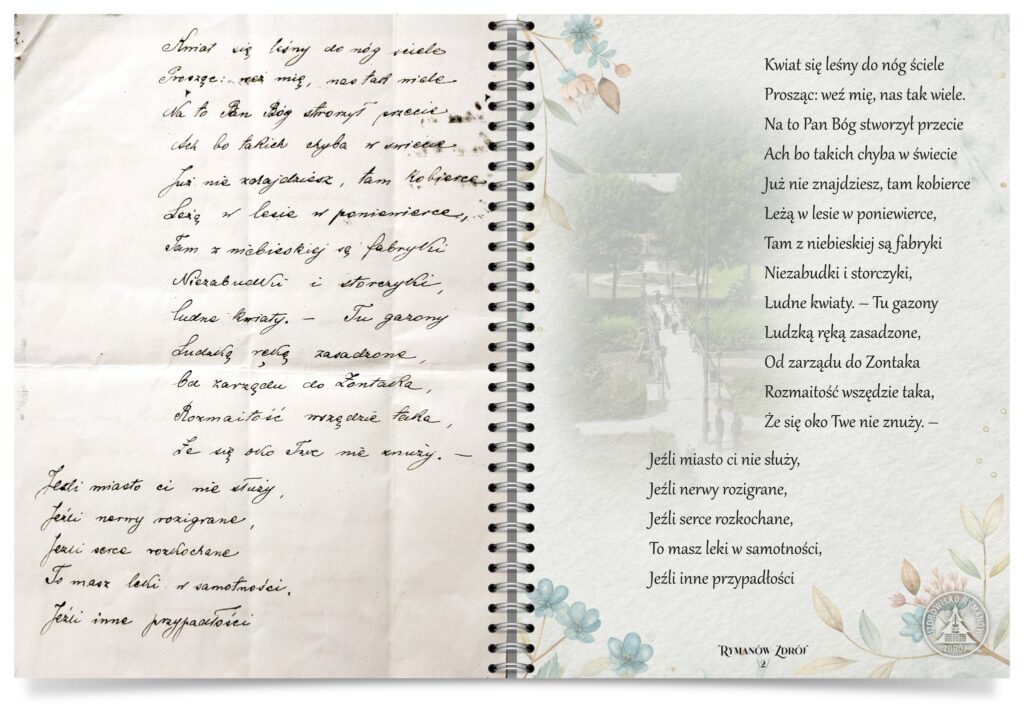 2.
Kwiat się liśny do nóg ściele
Prosząc: weź mię, nas tak wiele
Na to Pan Bóg stworzył przecie
Ach bo takich chyba w świecie
Już nie znajdziesz, tam kobierce
Leżą w lesie w poniewierce,
Tam z niebieskiej są fabryki
Niezabudki i storczyki,
ludne kwiaty. — Tu gazony
Ludzką ręką zasadzone,
Od zarządu do Zontaka,
Rozmaitość wszędzie taka,
Że się oko Twe nie znuży. —
Jeźli miasto ci nie służy,
Jeźli nerwy rozigrane,
Jeźli serce rozkochane
To masz leki w samotności,
Jeźli inne przypadłości
Kwiat się leśny do nóg ściele
Prosząc: weź mię, nas tak wiele.
Na to Pan Bóg stworzył przecie
Ach bo takich chyba w świecie
Już nie znajdziesz, tam kobierce
Leżą w lesie w poniewierce,
Tam z niebieskiej są fabryki
Niezabudki i storczyki,
Ludne kwiaty. – Tu gazony
Ludzką ręką zasadzone,
Od zarządu do Zontaka
Rozmaitość wszędzie taka,
Że się oko Twe nie znuży. –
Jeźli miasto ci nie służy,
Jeźli nerwy rozigrane,
Jeźli serce rozkochane,
To masz leki w samotności,
Jeźli inne przypadłości
"Rymanów-Zdrój"
/2/
UZDROWISKO RYMANÓW
ZDRÓJ